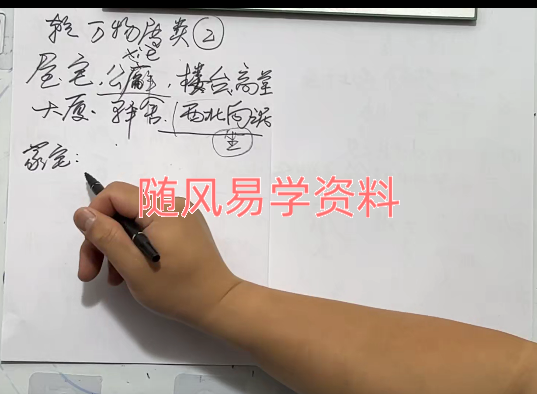 乾万物属类②
xiè
屋宅、公廨、楼台、高堂
大厦、驿舍、西北向居
坐
家宅:
随风易学资料